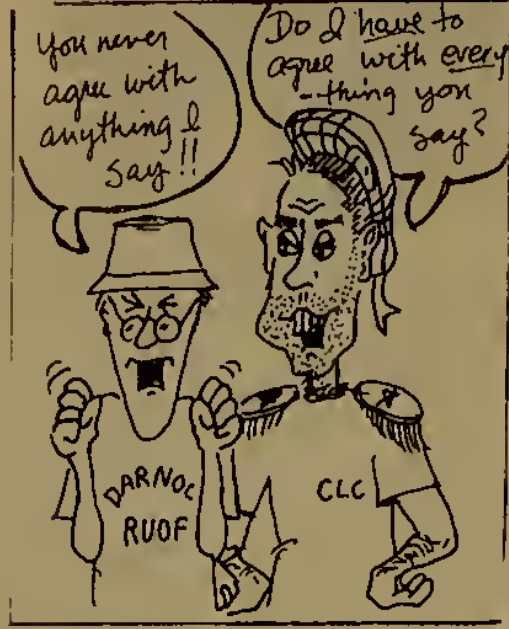 You never
agree with
anything I
say!!
Do I have to
agree with every
-thing you
say?
DARNOC
RUOF
CLC